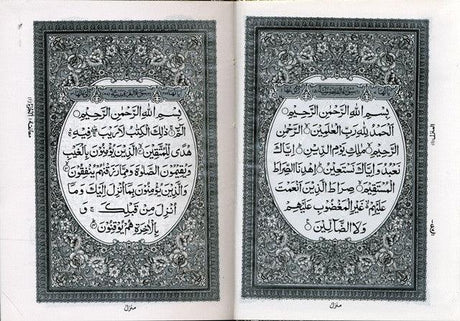 بِسْمِ اللهِ الرَّحْمٰنِ الرَّحِيْمِ
اَلْحَمْدُ لِلّٰهِ رَبِّ الْعٰلَمِيْنَ ۝ الرَّحْمٰنِ
الرَّحِيْمِ ۝ مٰلِكِ يَوْمِ الدِّيْنِ ۝ اِيَّاكَ
نَعْبُدُ وَاِيَّاكَ نَسْتَعِيْنُ ۝ اِهْدِنَا الصِّرَاطَ
الْمُسْتَقِيْمَ ۝ صِرَاطَ الَّذِيْنَ اَنْعَمْتَ
عَلَيْهِمْ ۝ غَيْرِ الْمَغْضُوْبِ عَلَيْهِمْ
وَلَا الضَّآلِّيْنَ ۝
منزل
بِسْمِ اللهِ الرَّحْمٰنِ الرَّحِيْمِ
الٓمّٓ ۝ ذٰلِكَ الْكِتٰبُ لَا رَيْبَ فِيْهِ
هُدًى لِّلْمُتَّقِيْنَ ۝ الَّذِيْنَ يُؤْمِنُوْنَ بِالْغَيْبِ
وَيُقِيْمُوْنَ الصَّلٰوةَ وَمِمَّا رَزَقْنٰهُمْ يُنْفِقُوْنَ ۝
وَالَّذِيْنَ يُؤْمِنُوْنَ بِمَآ اُنْزِلَ اِلَيْكَ وَمَآ
اُنْزِلَ مِنْ قَبْلِكَ وَ
بِالْاٰخِرَةِ هُمْ يُوْقِنُوْنَ ۝
منزل